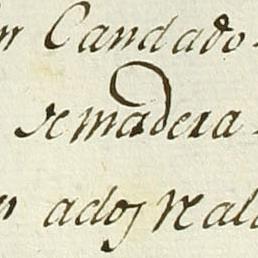 Candado
de madera
ados real